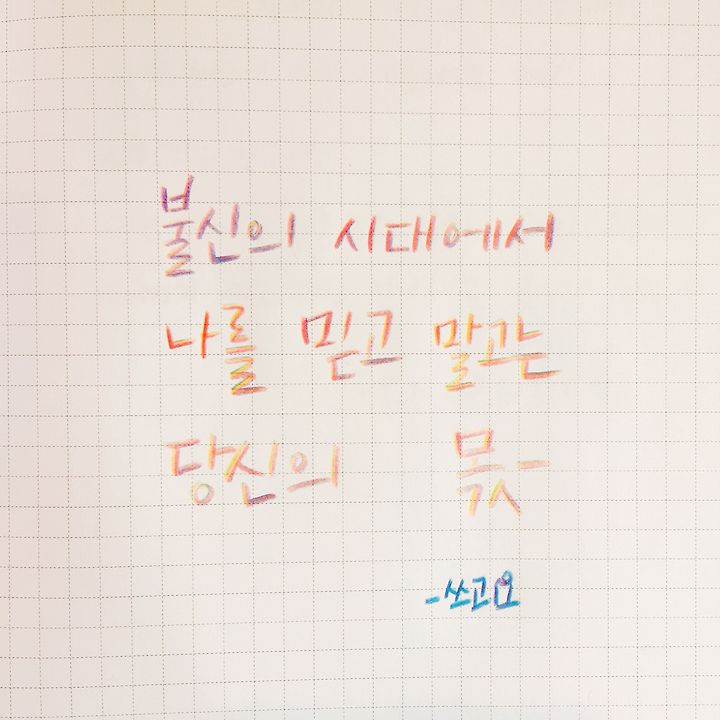 불신의 시대에서
나를 믿고 말고는
당신의 몫-
-쏘고요